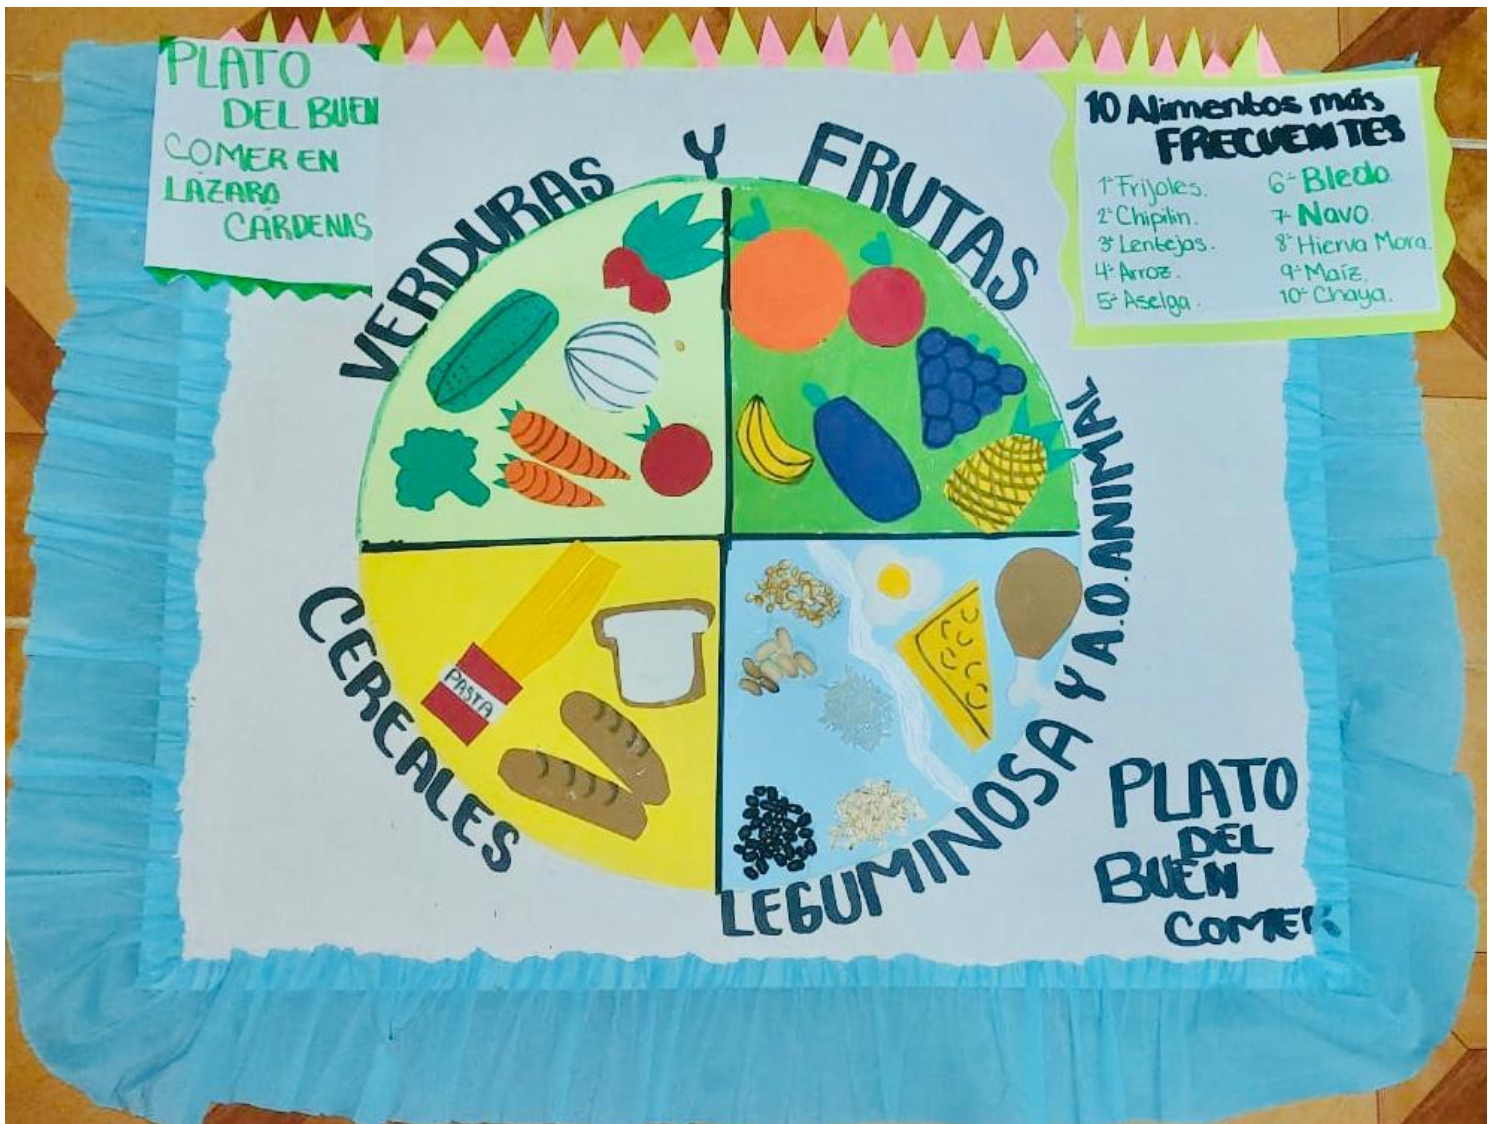 PLATO
DEL BUEN
COMER EN
LÁZARO
CÁRDENAS
10 Alimentos más
FRECUENTES
1º Frijoles.
2º Chipilin.
3º Lentejas.
4º Arroz.
5º Aselga.
6º Bledo.
7º Navo.
8º Hierva Mora.
9º Maíz.
10º Chaya.
VERDURAS Y FRUTAS
CEREALES
PASTA
LEGUMINOSA Y A.O.ANIMAL
PLATO
DEL
BUEN
COMER